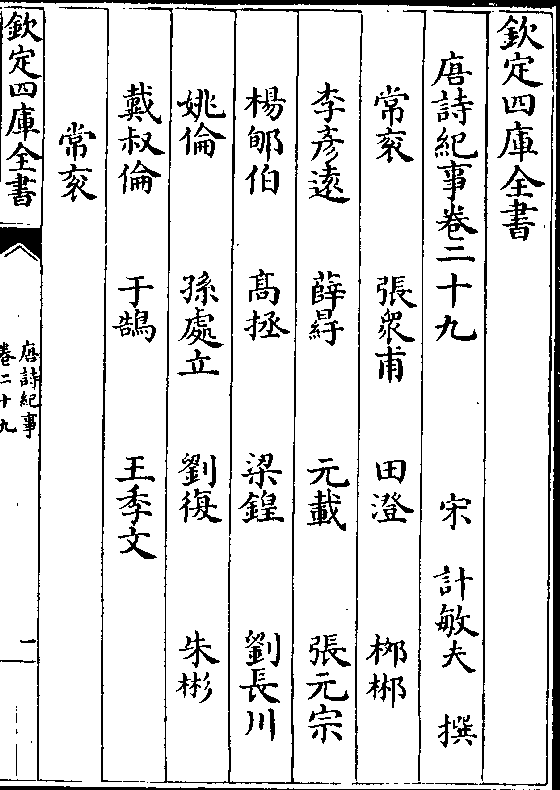 欽定四庫全書
唐詩紀事卷二十九 宋 計敏夫 撰
常衮 張衆甫 田澄 栁郴
李彦逺 薛 元載 張元宗
楊郇伯 髙拯 梁鍠 劉長川
姚倫 孫處立 劉復 朱彬
戴叔倫 于鵠 王季文
常衮
欽定四庫全書
唐詩紀事
卷二十九
一